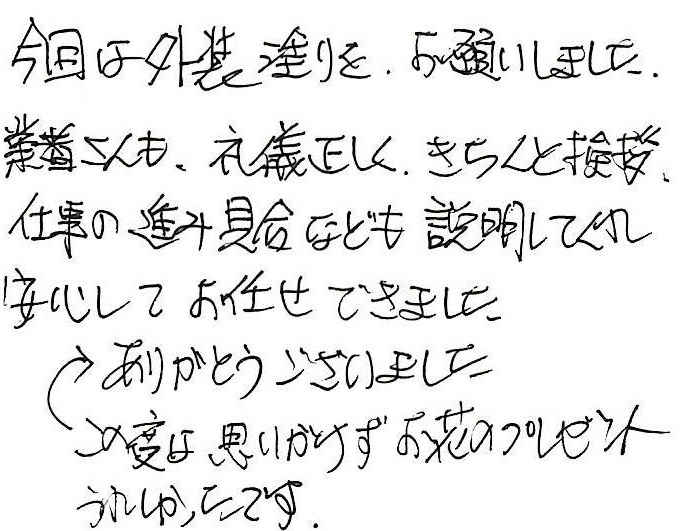 今回は外装塗りを、お願いしました.
業者さんも、礼儀正しく、きちんと挨拶、
仕事の進み具合なども説明してくれ
安心してお任せできました
ありがとうございました
この度は思いがけずお花のプレゼント
うれしかったです.